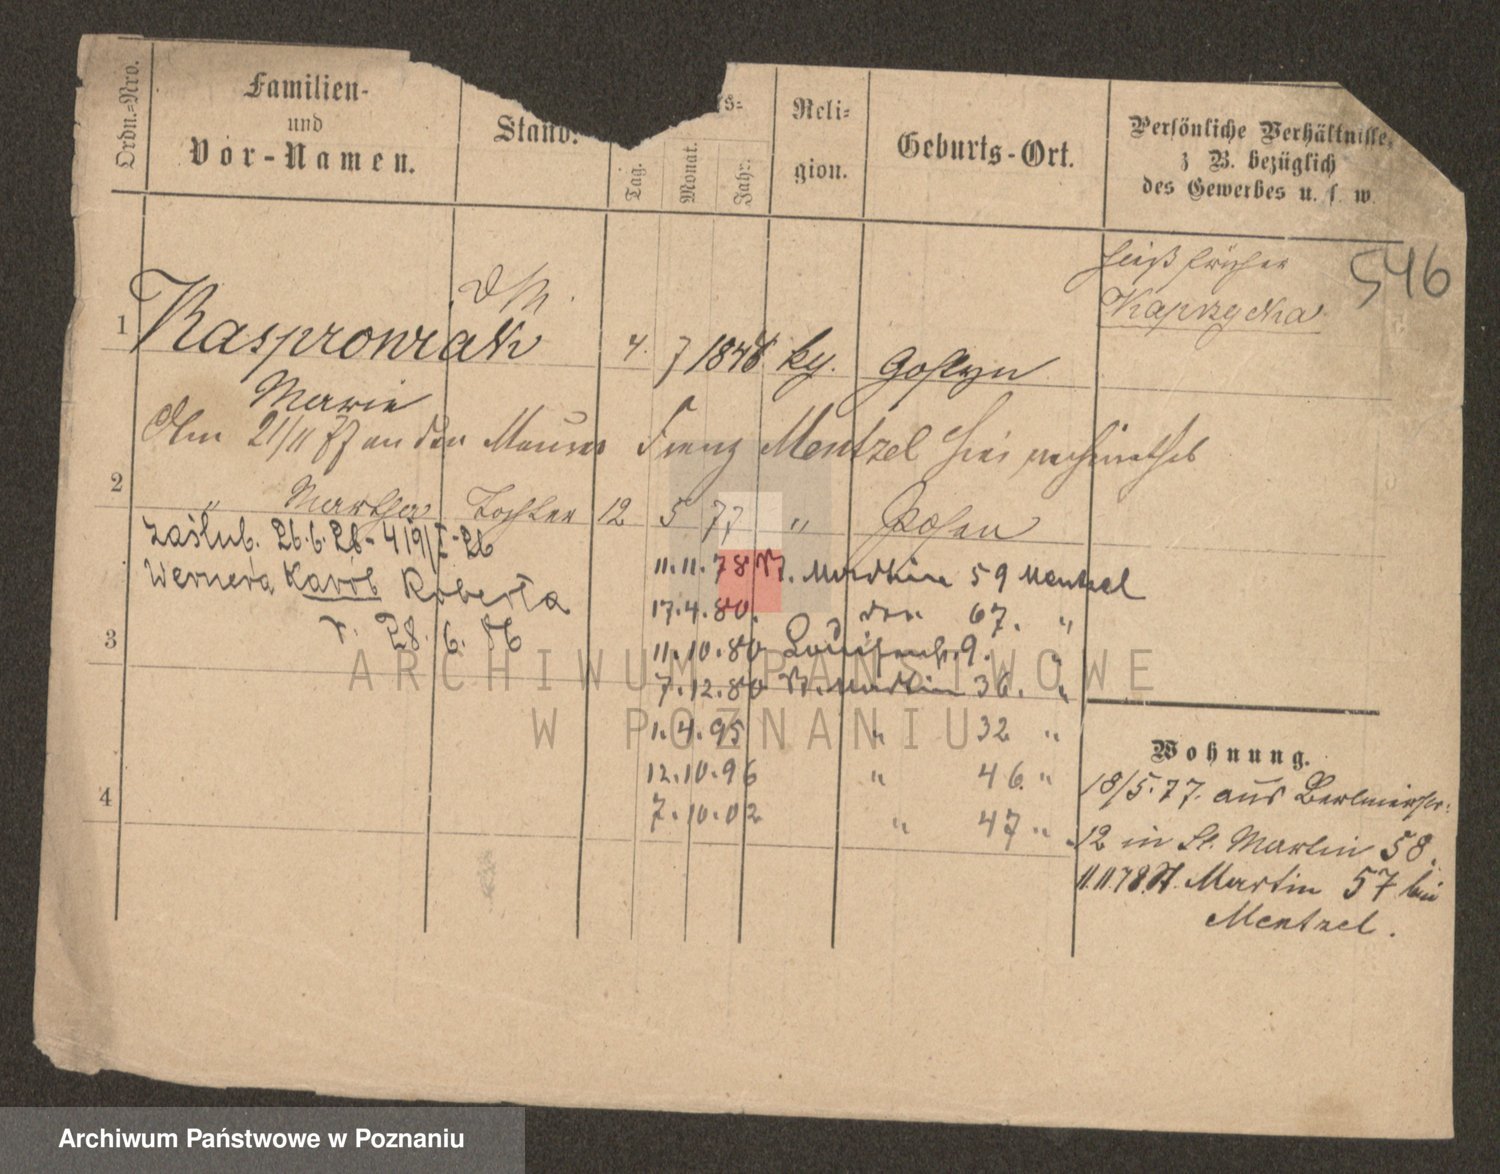 Ordn.=Nro.
Familien-
und
Vor-Namen.
Stand.
s=
Tag.
Monat.
Jahr.
Reli=
gion.
Geburts-Ort.
Persönliche Verhältnisse,
z B. bezüglich
des Gewerbes u. s. w.
546
heißt früher
Kaprzycka
1 Kasprowiak 4. 7 1848 kg. Gostyn
Marie
Am 21/11 77 an den Maurer Franz Mentzel hier verheirathet
2 " Martha Tochter 12 5 77 " Posen
zaślub. 26.6.26 - 419/I-26
Wernera Karol Roberta
r. 28. 6. 86
11.11.78 St. Martin 59 Mentzel
17.4.80. 67. "
3
11.10.80 Louisenstr. 9. "
7.12.80 St. Martin 36. "
1.4.95 " 32 "
12.10.96 " 46. "
7.10.02 " 47 "
4
Wohnung.
18/5.77. aus Berlinerstr.
12 in St. Martin 58.
11.11 78. St. Martin 57 bei
Mentzel.
ARCHIWUM PAŃSTWOWE
W POZNANIU
Archiwum Państwowe w Poznaniu